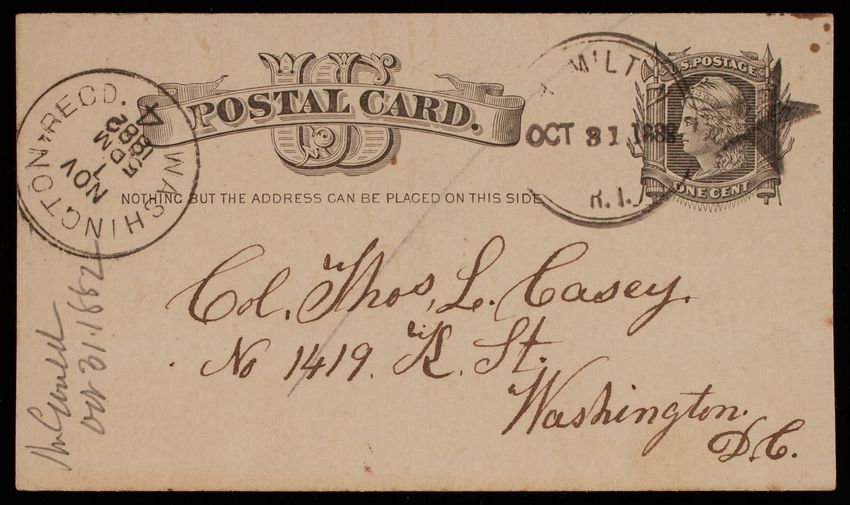 US
POSTAL CARD.
NOTHING BUT THE ADDRESS CAN BE PLACED ON THIS SIDE
U.S. POSTAGE
ONE CENT
MILT
OCT 31 188
R.I.
WASHINGTON, RECD.
NOV
1
5 PM
1882
4
Col. Thos, L. Casey.
No 1419. K. St.
Washington.
D.C.
Oct 31. 1882